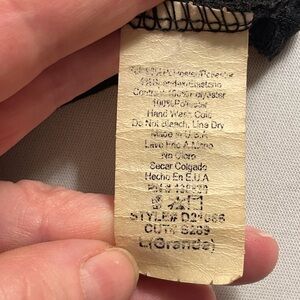 Polyester/Poliester
4%Spandex/Elastano
Contrast:100%Polyester
100%Poliester
Hand Wash Cold
Do Not Bleach, Line Dry
Made in U.S.A
Lave En A Mano
No Cloro
Secar Colgado
Hecho En E.U.A
RN#
STYLE# D21066
CUT# S269
L(Grande)